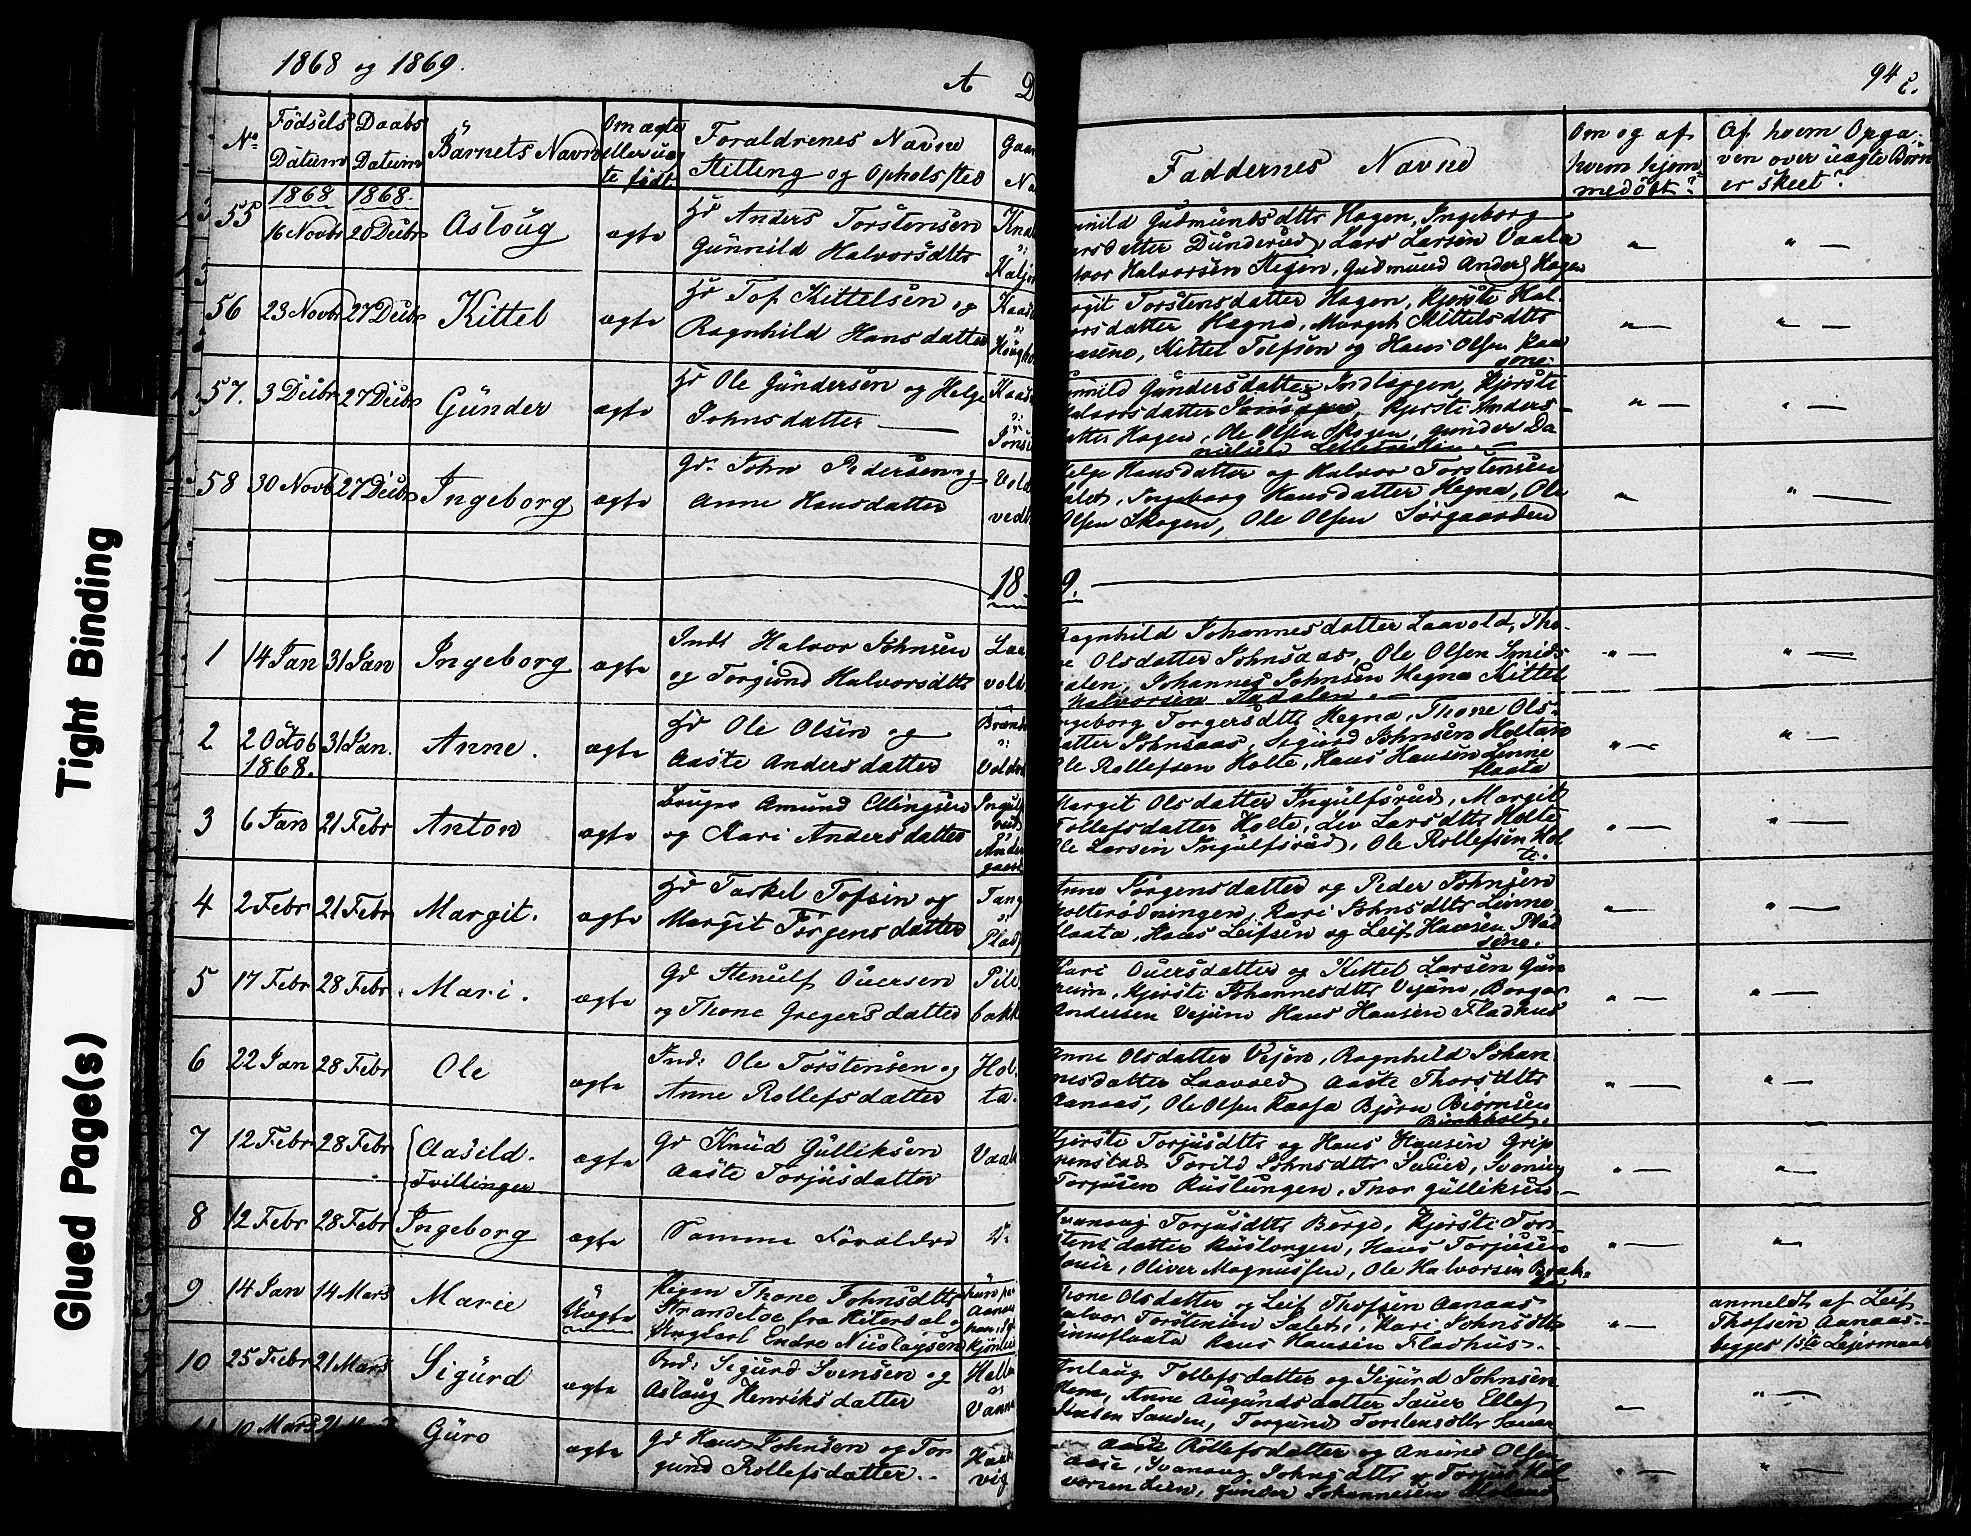 1868 og 1869.
A D
94 c.
No
Födsels Datum
Daabs Datum
Barnets Navn
Om ægte eller uægte født
Foraldrenes Navne Stilling og Opholsted
Gaar Na
Faddernes Navne
Om og af hvem hjemmedøbt?
Af hvem Opgaven over uægte Børn er skeet?
1868 1868.
55 16 Novbr 26 Decbr Asloug ægte
Anders Torstensen
Gunnild Halvorsdtr
nild Gudmundsdtr Hagen, Ingeborg
ersdatter Dunderud, Lars Larsen Vaala
vor Halvorsen Stegen, Gudmund Anders Hagen
56 23 Novbr 27 Decbr Kittel ægte
Tof Kittelsen og
Ragnhild Hansdatter
rgit Torstensdatter Hagen, Kjerste Hal-
orsdatter Hegna, Margit Kittelsdtr
aasene, Kittel Tofsen og Hans Olsen Kaa
sene.
57. 3 Decbr 27 Decbr Gunder ægte
Ole Gundersen og Helge
Johnsdatter
unnild Gundersdatter Indlæggen, Kjerste
Halvorsdatter, Kjersti Anders-
atter Hagen, Ole Olsen Skogen, Gunder Da
nielsen
58 30 Novb 27 Decbr Ingeborg ægte
Gr. John Pedersen og
Anne Hansdatter
Vold
vedt
elge Hansdatter og Halvor Torstensen
alet, Ingeborg Hansdatter Hegna, Ole
Olsen Skogen, Ole Olsen Sørgaarden
18 9.
1 14 Jan 31 Jan Ingeborg ægte
Inds Halvor Johnsen
og Torgund Halvorsdtr
Laa
vold
Ragnhild Johannesdatter Laavold, Tho-
ne Olsdatter Johnsaas, Ole Olsen Smids
dalen, Johannes Johnsen Hegna Kittel
Halvorsen Stadalen.
2 2 Octob 1868. 31 Jan. Anne. ægte
Ole Olsen og
Aaste Andersdatter
ngeborg Torgersdtr Hegna, Thone Ols-
datter Johnsaas, Sigurd Johnsen Holtan
Ole Rollefsen Holte, Hans Hansen Linne
flaata
3 6 Jan 21 Febr Anton ægte
Bruger Amund Ellingsen
og Kari Andersdatter
Margit Olsdatter Ingulfsrud, Margit
Tollefsdatter Holte, Liv Larsdtr Holte
Ole Larsen Ingulfsrud, Ole Rollefsen Hol
te.
4 2 Febr 21 Febr Margit. ægte
Tarkel Tofsen og
Margit Jörgensdatter
Tang
Plads
Anne Jörgensdatter og Peder Johnsen
Holterødningen, Kari Johnsdtr Linne-
flaata, Hans Leifsen og Leif Hansen Plad
sene.
5 17 Febr 28 Febr Mari. ægte
Gr Stenulf Ouersen
og Thone Gregersdatter
Pile
bakk
Kari Ouersdatter og Kittel Larsen Gun
heim, Kjerste Johannesdtr Vejune, Borger
Andersen Vejune Hans Hansen Fladhus
6 22 Jan 28 Febr Ole ægte
Ind: Ole Torstensen og
Anne Rollefsdatter
Hol
ta.
Anne Olsdatter Vejen, Ragnhild Johan
nesdatter Laavold, Aaste Thorsdtr
Aanaas, Ole Olsen Kaasa Björn Björnsen
Birkholt.
7 12 Febr 28 Febr Aasild. Tvillinger ægte
Gr Knud Gulliksen
Aaste Torjusdatter
Vaal
Kjerste Torjusdtr og Hans Hansen Grip
penstad Torild Johnsdtr Sauer, Svening
Torjusen Ruslungen, Thor Gulliksen
8 12 Febr 28 Febr Ingeborg ægte
Samme Foraldre
Do
Svanaug Torjusdtr Borge, Kjerste Tor-
stensdatter Ruslongen, Hans Torjusen
ouie, Oliver Magnussen, Ole Halvorsen
9 14 Jan 14 Mars Marie Uægte
Pigen Thone Johnsdtr
Strandeløe fra Hitersal og
Ungkarl Endre Nielsen
Thone Olsdatter og Leif Thofsen Aanaas
Halvor Torstensen Salet, Kari Johnsdtr
Linneflaata Hans Hansen Fladhus.
anmeldt af Leif
Thofsen Aanaas.
begges 1ste Lejermaal
10 25 Febr 21 Mars Sigurd ægte
Ind: Sigurd Svensen og
Aslaug Henriksdatter
Anlaug Tollefsdatter og Sigurd Johnsen
Anne Augundsdatter Sauer Ellef
Jensen Sanden, Torgund Torstensdtr Sauer
10 Mars Guro ægte
Gr Hans Johnsen og Tor
gund Rollefsdatter.
Haat
vig
Aaste Rollefsdatter og Anund Olsen
aase, Svanaug Johnsdtr og Torjus Hal
vorsen, Gunder Johannesen
Tight Binding
Glued Page(s)